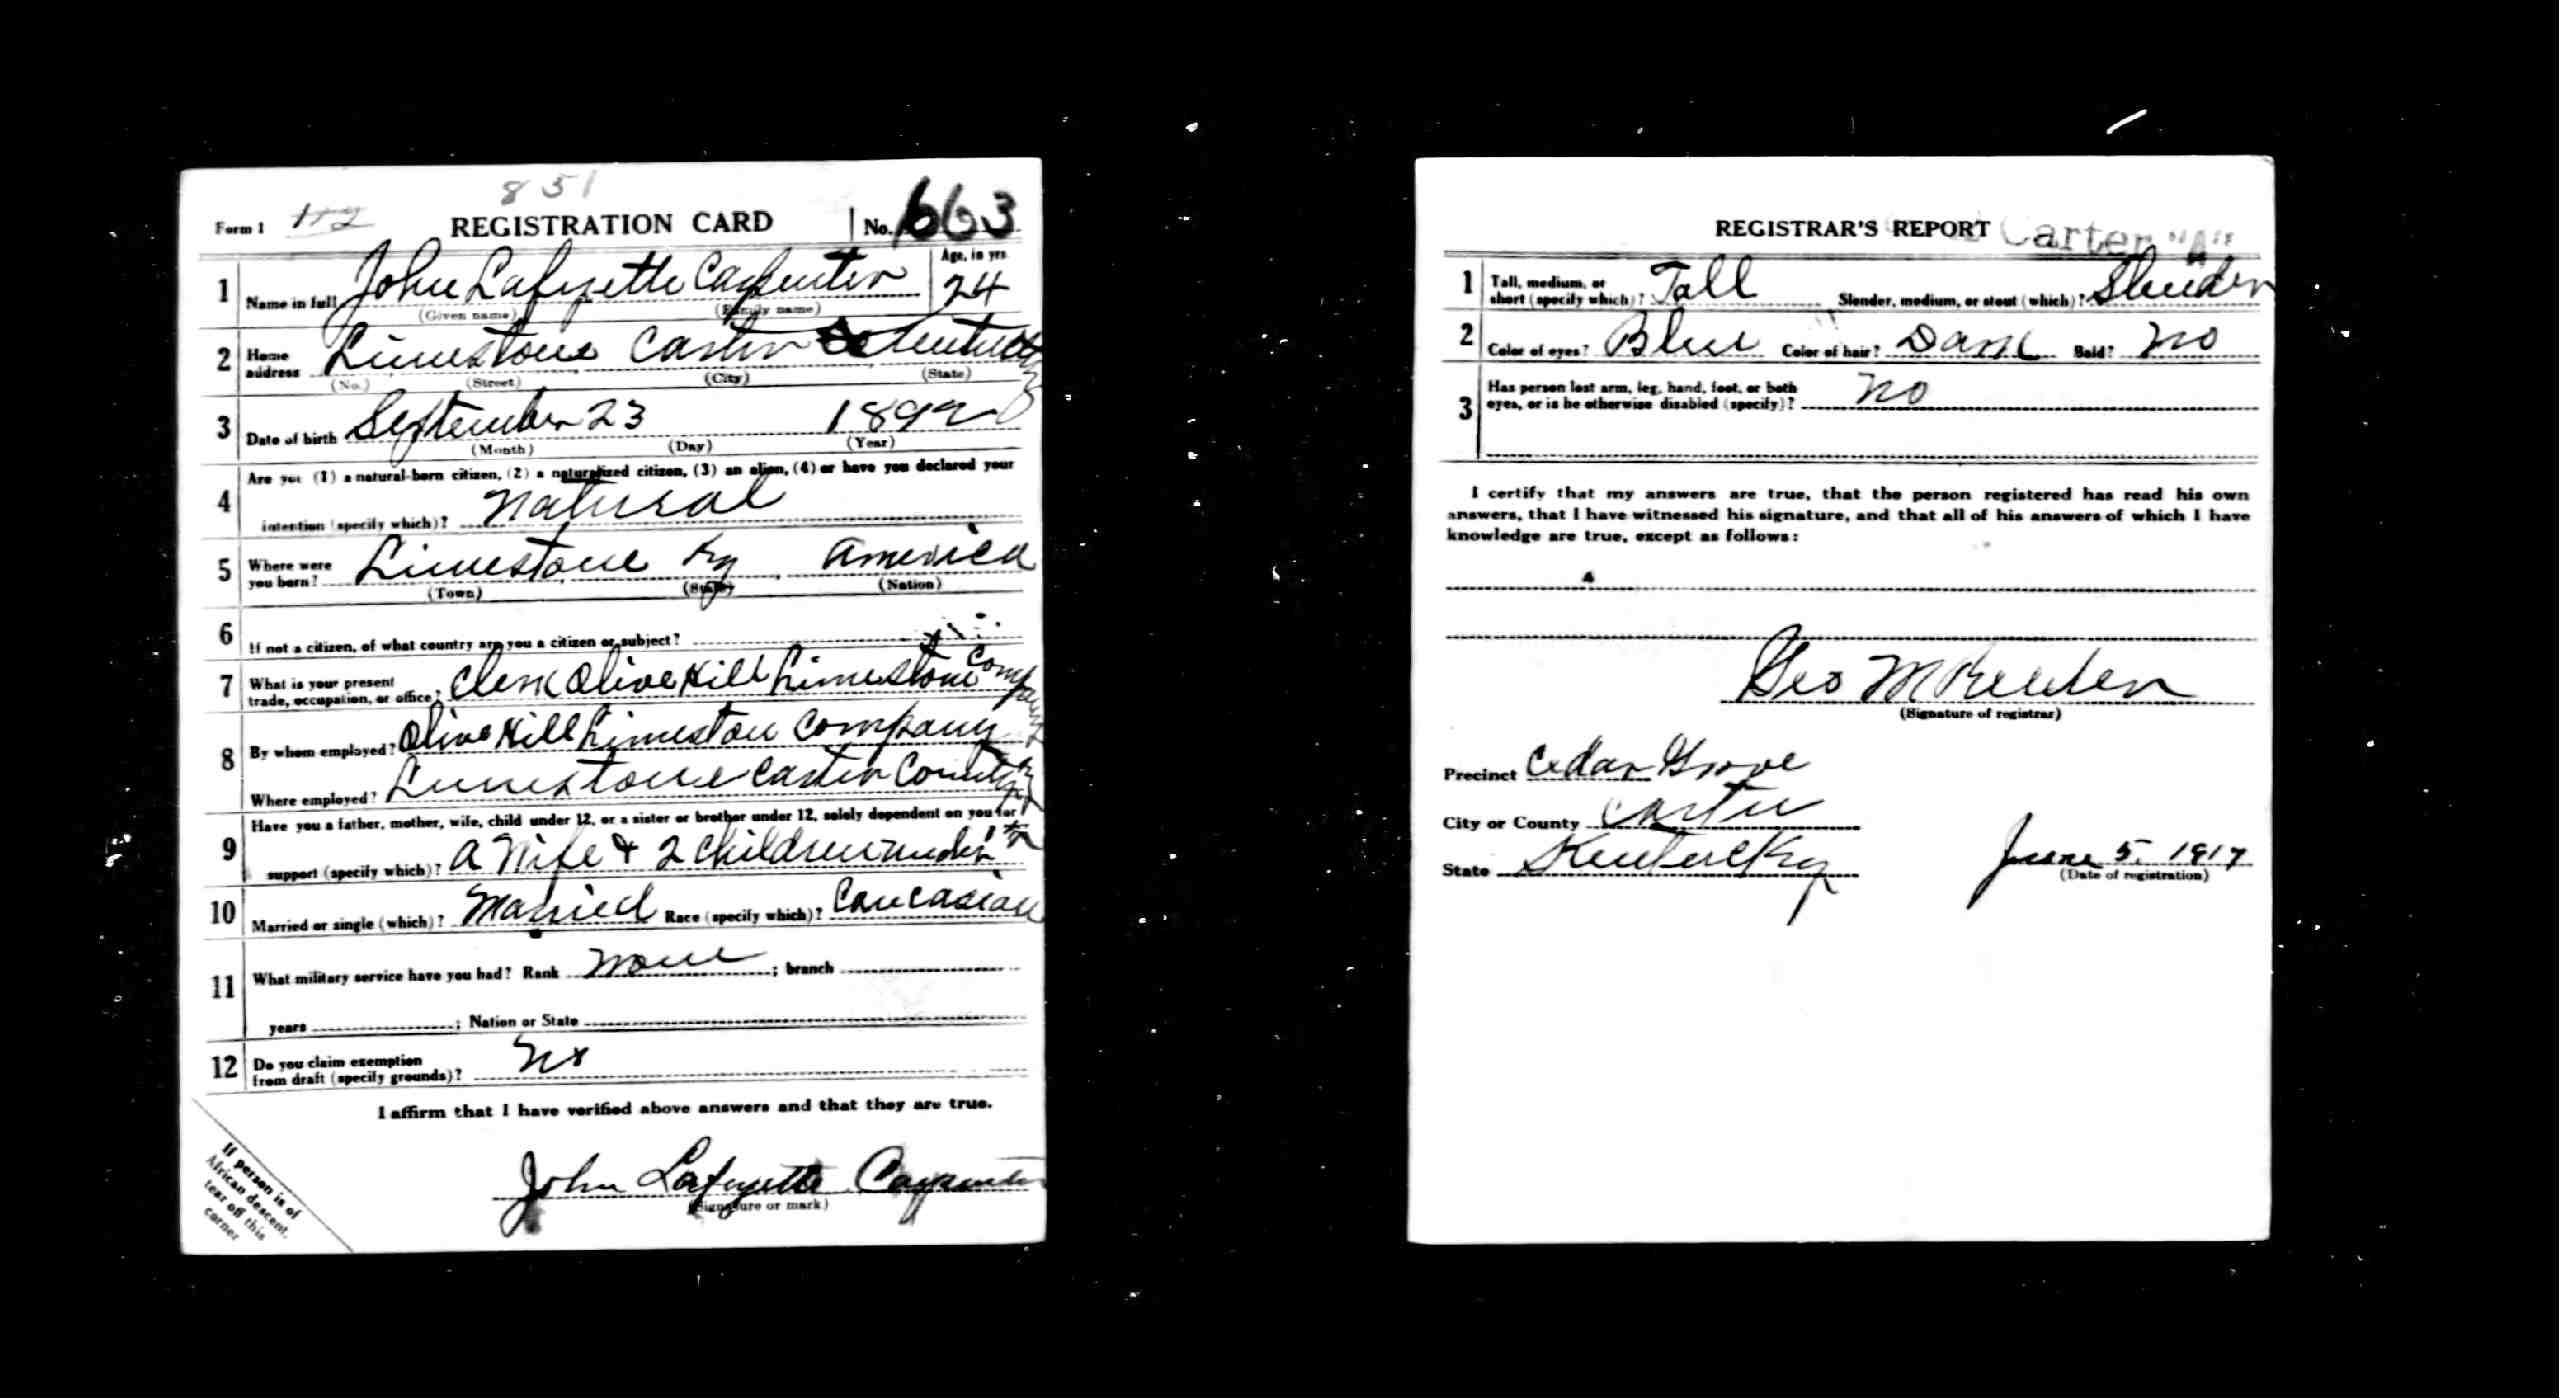 851
Form 1
REGISTRATION CARD No. 663
1 Name in full John Lafyette Carpenter Age, in yrs. 24
(Given name) (Family name)
2 Home address Limestone Carter Kentucky
(No.) (Street) (City) (State)
3 Date of birth September 23 1892
(Month) (Day) (Year)
4 Are you (1) a natural-born citizen, (2) a naturalized citizen, (3) an alien, (4) or have you declared your
intention (specify which)? Natural
5 Where were you born? Limestone Ky America
(Town) (State) (Nation)
6 If not a citizen, of what country are you a citizen or subject?
7 What is your present trade, occupation, or office? Clerk Olive Hill Limestone Company
8 By whom employed? Olive Hill Limestone Company
Where employed? Limestone Carter County Ky
9 Have you a father, mother, wife, child under 12, or a sister or brother under 12, solely dependent on you for
support (specify which)? a Wife & 2 children under 12
10 Married or single (which)? Married Race (specify which)? Caucasian
11 What military service have you had? Rank None ; branch
years ; Nation or State
12 Do you claim exemption from draft (specify grounds)? No
I affirm that I have verified above answers and that they are true.
John Lafyette Carpenter
(Signature or mark)
If person is of
African descent,
tear off this
corner
REGISTRAR'S REPORT Carter "A"
1 Tall, medium, or short (specify which)? Tall Slender, medium, or stout (which)? Slender
2 Color of eyes? Blue Color of hair? Dark Bald? No
3 Has person lost arm, leg, hand, foot, or both
eyes, or is he otherwise disabled (specify)? No
I certify that my answers are true, that the person registered has read his own
answers, that I have witnessed his signature, and that all of his answers of which I have
knowledge are true, except as follows:
Geo M
(Signature of registrar)
Precinct Cedar Grove
City or County Carter
State Kentucky June 5, 1917
(Date of registration)